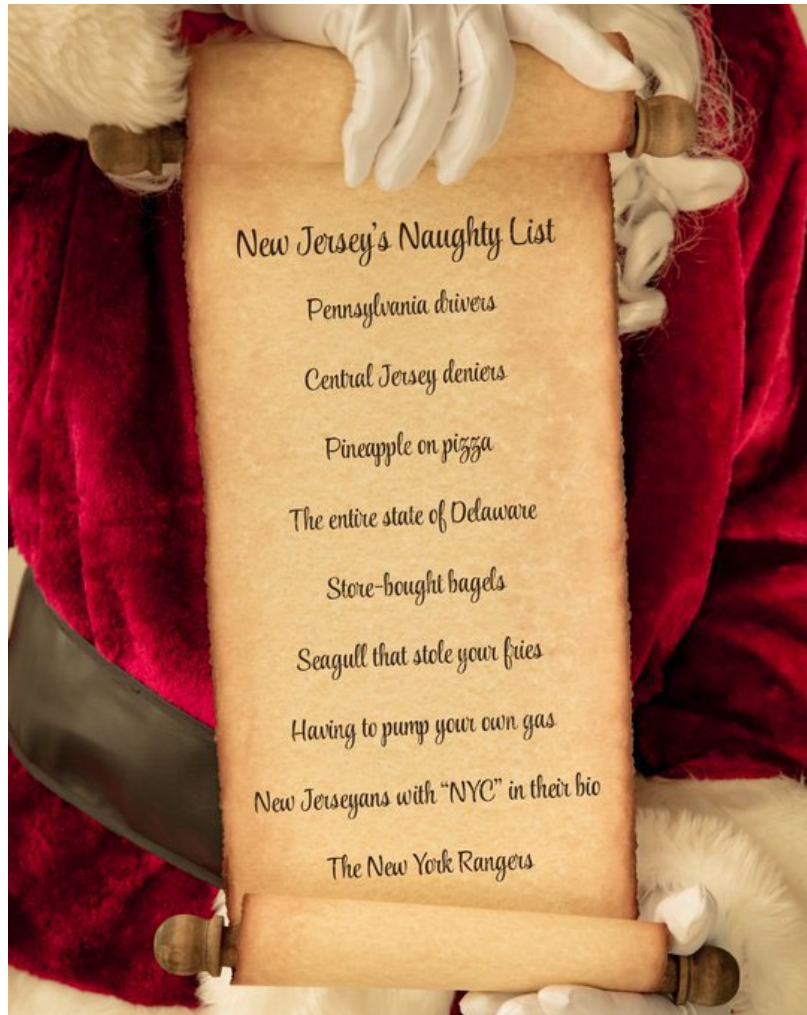 New Jersey's Naughty List
Pennsylvania drivers
Central Jersey deniers
Pineapple on pizza
The entire state of Delaware
Store-bought bagels
Seagull that stole your fries
Having to pump your own gas
New Jerseyans with “NYC” in their bio
The New York Rangers